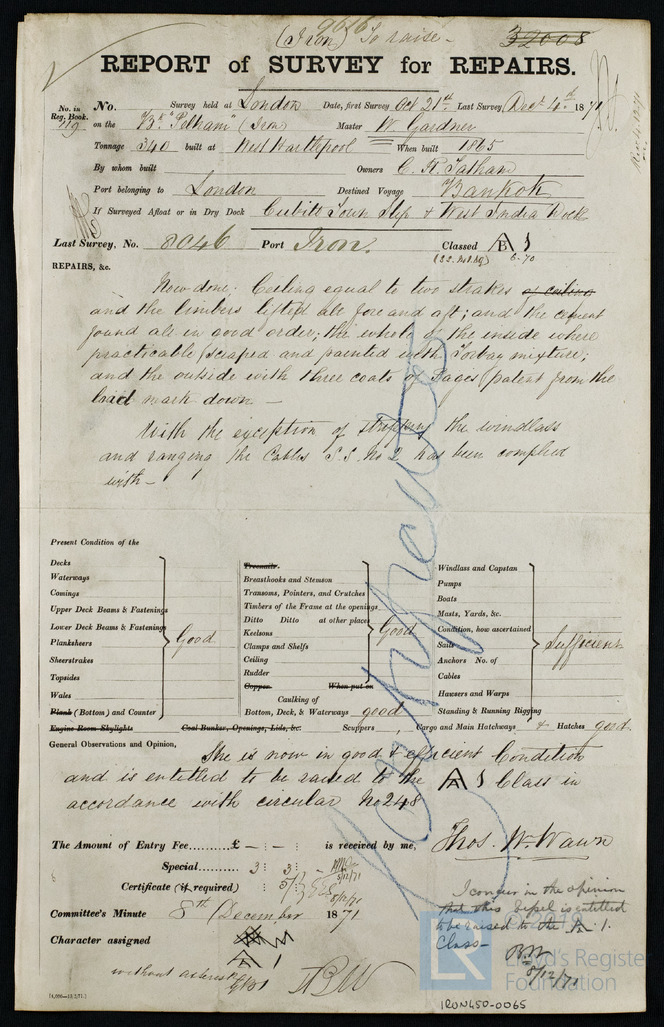 (Iron) 9616 To raise - 32008
REPORT of SURVEY for REPAIRS.
No. in Reg. Book. No. Survey held at London Date, first Survey Oct 21st Last Survey Decr 4th 1871
719 on the Bk "Pelham" (Iron) Master W Gardner
Tonnage 340 built at West Hartlepool When built 1865
By whom built Owners C. R. Tatham
Port belonging to London Destined Voyage Bankok
If Surveyed Afloat or in Dry Dock Cubitt Town Slip & West India Dock
Last Survey, No. 8046 Port Iron. Classed B 1
6.70
REPAIRS, &c.
Now done: Ceiling equal to two strakes of ceiling
and the limbers lifted all fore and aft; and the cement
found all in good order; the whole of the inside where
practicable scraped and painted with Torbay mixture;
and the outside with three coats of Pages patent from the
laid mark down —
With the exception of stripping the windlass
and ranging the Cables S.S. No 2 has been complied
with —
Present Condition of the
Decks
Waterways
Comings
Upper Deck Beams & Fastenings
Lower Deck Beams & Fastenings
Planksheers
Sheerstrakes
Topsides
Wales
Plank (Bottom) and Counter
Good
Treenails
Breasthooks and Stemson
Transoms, Pointers, and Crutches
Timbers of the Frame at the openings
Ditto Ditto at other places
Keelsons
Clamps and Shelfs
Ceiling
Rudder
Good
Copper When put on
Caulking of
Bottom, Deck, & Waterways good
Windlass and Capstan
Pumps
Boats
Masts, Yards, &c.
Condition, how ascertained
Sails
Anchors No. of
Cables
Hawsers and Warps
Standing & Running Rigging
Sufficient
Engine Room Skylights Coal Bunker, Openings, Lids, &c. Scuppers Cargo and Main Hatchways & Hatches good.
General Observations and Opinion,
She is now in good & efficient Condition
and is entitled to be raised to the A 1 Class in
accordance with circular No 248
The Amount of Entry Fee £ - : - : is received by me,
Special 3 : 3 : -
5/12/71
Certificate (if required) 5/
8/12/71
Thos. W. Wawn
Committee's Minute 8th December 1871
Character assigned
A 1
without asterisk
I concur in the opinion
that this Vessel is entitled
to be raised to the A 1.
Class —
8/12/71
© 2019
LR
Lloyd's Register
Foundation
IRON450-0065